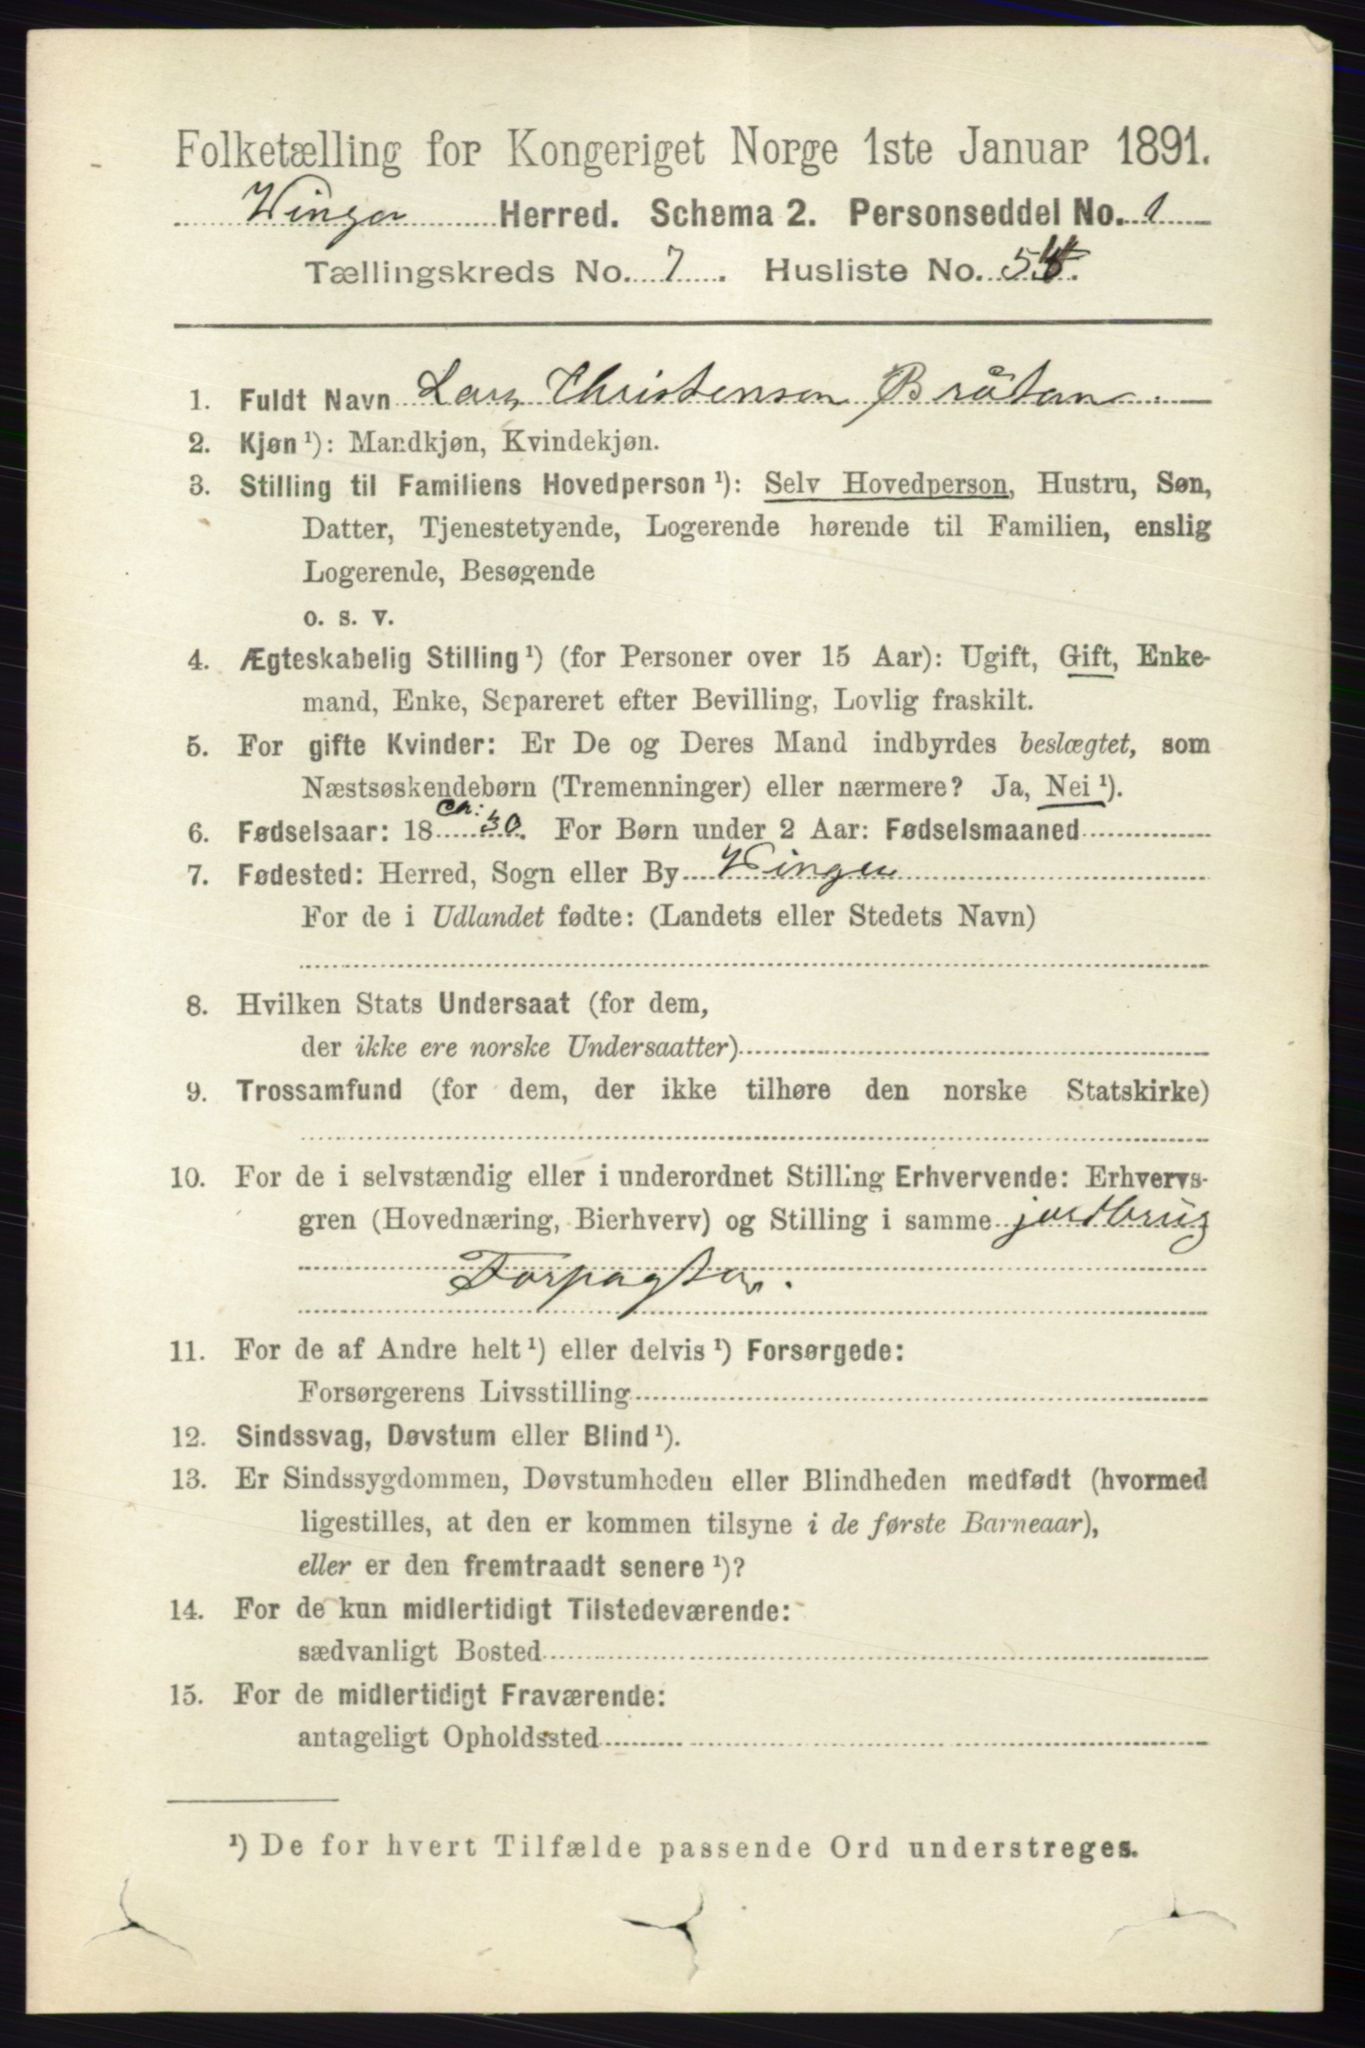 Folketælling for Kongeriget Norge 1ste Januar 1891.
Winger Herred. Schema 2. Personseddel No. 1
Tællingskreds No. 7. Husliste No. 54.
1. Fuldt Navn Lars Christensen Bråtan
2. Kjøn ¹): Mandkjøn, Kvindekjøn.
3. Stilling til Familiens Hovedperson ¹): Selv Hovedperson, Hustru, Søn,
Datter, Tjenestetyende, Logerende hørende til Familien, enslig
Logerende, Besøgende
o. s. v.
4. Ægteskabelig Stilling ¹) (for Personer over 15 Aar): Ugift, Gift, Enke-
mand, Enke, Separeret efter Bevilling, Lovlig fraskilt.
5. For gifte Kvinder: Er De og Deres Mand indbyrdes beslægtet, som
Næstsøskendebørn (Tremenninger) eller nærmere? Ja, Nei ¹).
6. Fødselsaar: 18 ca: 30. For Børn under 2 Aar: Fødselsmaaned
7. Fødested: Herred, Sogn eller By Winger
For de i Udlandet fødte: (Landets eller Stedets Navn)
8. Hvilken Stats Undersaat (for dem,
der ikke ere norske Undersaatter)
9. Trossamfund (for dem, der ikke tilhøre den norske Statskirke)
10. For de i selvstændig eller i underordnet Stilling Erhvervende: Erhvervs-
gren (Hovednæring, Bierhverv) og Stilling i samme jordbrug
Forpagter.
11. For de af Andre helt ¹) eller delvis ¹) Forsørgede:
Forsørgerens Livsstilling
12. Sindssvag, Døvstum eller Blind ¹).
13. Er Sindssygdommen, Døvstumheden eller Blindheden medfødt (hvormed
ligestilles, at den er kommen tilsyne i de første Barneaar),
eller er den fremtraadt senere ¹)?
14. For de kun midlertidigt Tilstedeværende:
sædvanligt Bosted
15. For de midlertidigt Fraværende:
antageligt Opholdssted
¹) De for hvert Tilfælde passende Ord understreges.